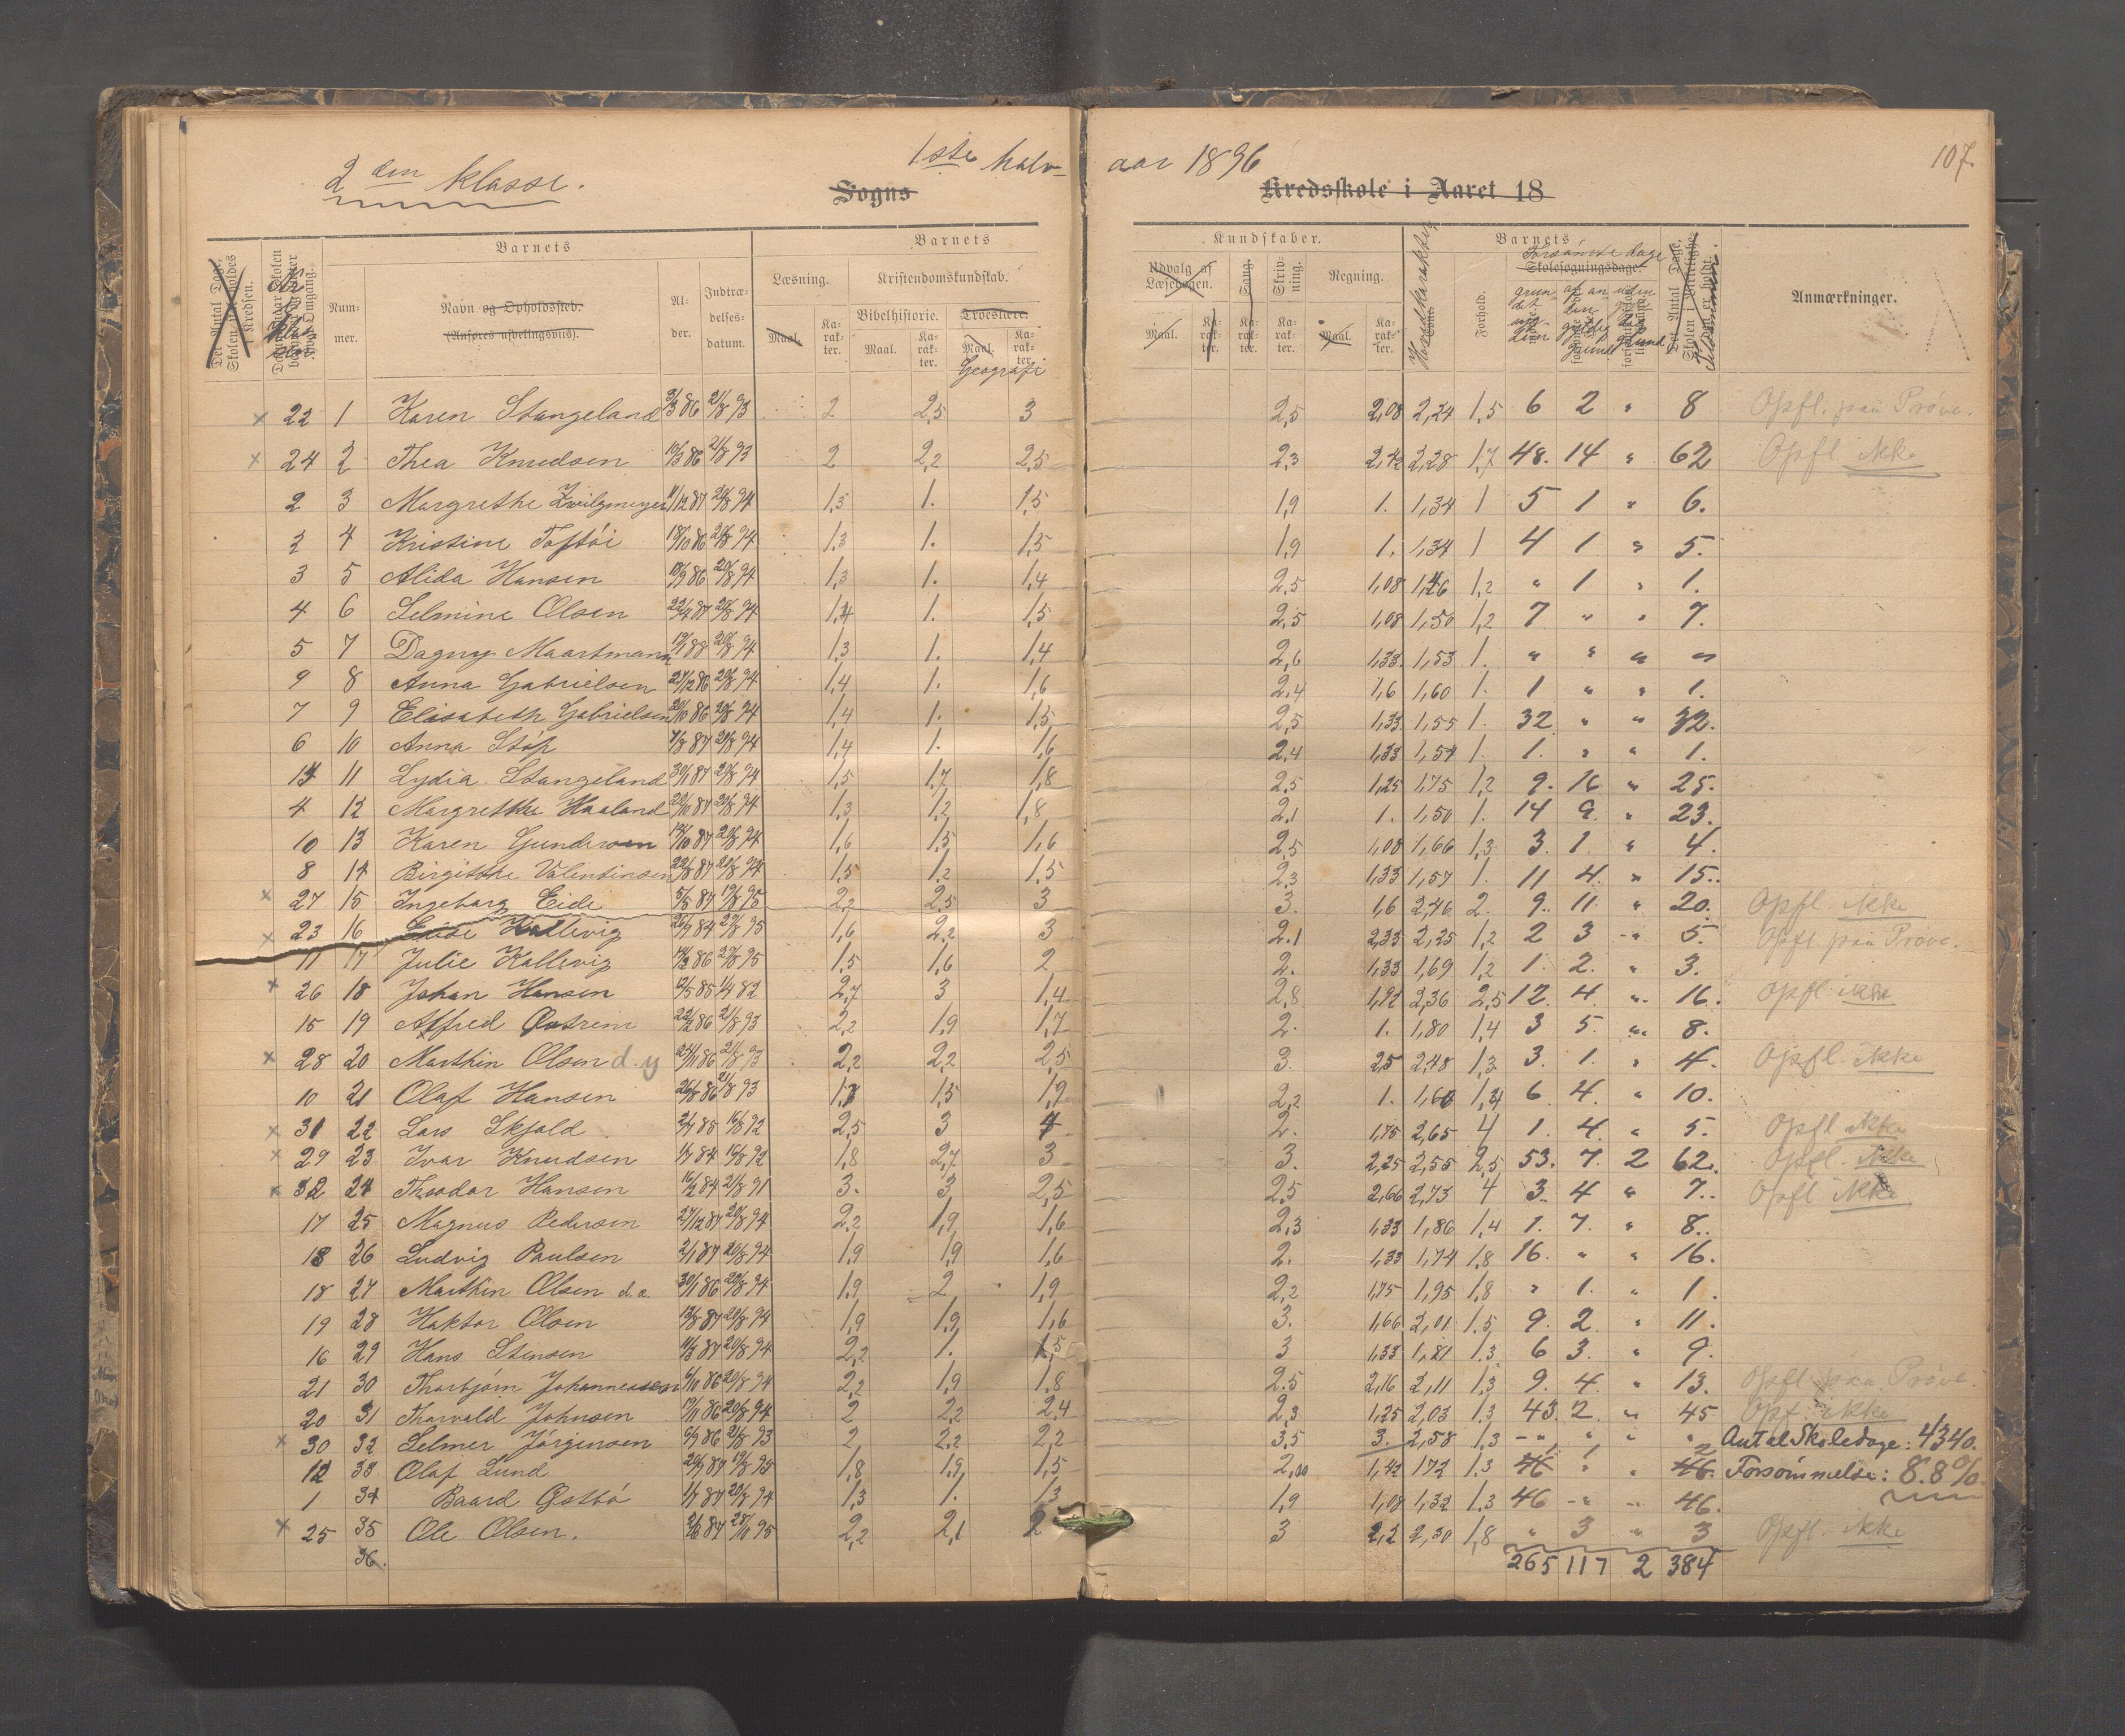 2den klasse. 1ste halv-aar 1896 107.
Sogns Kredsskole i Aaret 18
Barnets Barnets Kundskaber. Barnets
Det Antal Dage, Skolen skal holdes i Kredsen. Nr i klassen Num-mer. Navn og Opholdssted. (Anføres afdelingsvis). Al-der. Indtræ-delses-datum. Læsning. Kristendomskundskab. Udvalg af Læsebogen. Sang. Skriv-ning. Regning. Hovedkarakter Forhold. Forsømte dage Skolesøgningsdage. Anmærkninger.
Bibelhistorie. Troeslære.
Maal. Ka-rak-ter. Maal. Ka-rak-ter. Maal. Ka-rak-ter. Maal. Ka-rak-ter. Ka-rak-ter. Ka-rak-ter. Maal. Ka-rak-ter.
Geografi
x 22 1 Karen Stangeland 3/3 86 21/8 93 2 2,5 3 2,5 2,08 2,24 1,5 6 2 " 8 Opfl. paa Prøve.
x 24 2 Thea Knudsen 10/3 86 21/8 93 2 2,2 2,5 2,3 2,42 2,28 1,7 48. 14 " 62 Opfl ikke
2 3 Margrethe Zwilgmeyer 11/12 87 20/8 94 1,3 1. 1,5 1,9 1. 1,34 1 5 1 " 6.
2 4 Kristine Toftøi 18/10 86 20/8 94 1,3 1. 1,5 1,9 1. 1,34 1 4 1 " 5.
3 5 Alida Hansen 18/9 86 20/8 94 1,3 1. 1,4 2,5 1,08 1,46 1,2 " 1 " 1.
4 6 Selmine Olsen 22/4 87 20/8 94 1,4 1. 1,5 2,5 1,08 1,50 1,2 7 " " 7.
5 7 Dagny Maartmann 19/1 88 20/8 94 1,3 1. 1,4 2,6 1,33 1,53 1. " " " "
9 8 Anna Gabrielsen 27/12 86 20/8 94 1,4 1. 1,6 2,4 1,6 1,60 1. 1 " " 1.
7 9 Elisabeth Gabrielsen 20/10 86 20/8 94 1,4 1. 1,5 2,5 1,33 1,55 1. 32 " " 32.
6 10 Anna Støp 7/8 87 20/8 94 1,4 1. 1,6 2,4 1,33 1,54 1. 1. " " 1.
14 11 Lydia Stangeland 30/1 87 20/8 94 1,5 1,7 1,8 2,5 1,25 1,75 1,2 9. 16 " 25.
4 12 Margrethe Haaland 20/10 87 20/8 94 1,3 1,2 1,8 2,1 1. 1,50 1. 14 9. " 23.
10 13 Karen Gundersen 14/10 87 20/8 94 1,6 1,5 1,6 2,5 1,08 1,66 1,3 3. 1. " 4.
8 14 Birgitthe Valentinsen 22/8 87 20/8 94 1,5 1,2 1,5 2,3 1,33 1,57 1. 11 4. " 15.
x 27 15 Ingeborg Eide 5/5 87 19/8 95 2,2 2,5 3 3. 1,6 2,46 2. 9. 11. " 20. Opfl. ikke
x 23 16 Kallevig 26/1 84 27/8 95 1,6 2,2 3 2.1 2,33 2,25 1,2 2 3 " 5. Opfl. paa Prøve.
11 17 Julie Kallevig 14/2 86 27/8 95 1,5 1,6 2 2. 1,33 1,69 1,2 1. 2. " 3.
x 26 18 Johan Hansen 12/5 85 1/4 82 2,7 3 1,4 2,8 1,92 2,36 2,5 12. 4. " 16. Opfl ikke
15 19 Alfred Østrem 22/2 86 21/8 93 2,2 1,9 1,7 2. 1. 1,80 1,4 3 5. " 8.
x 28 20 Marthin Olsen d.y 24/11 86 21/8 93 2,2 2,2 2,5 3. 2,5 2,48 1,3 3. 1. " 4. Opfl. ikke
10 21 Olaf Hansen 26/8 86 21/8 93 1,8 1,5 1,9 2,2 1. 1,68 1,4 6 4. " 10.
x 31 22 Lars Skjold 2/4 85 16/8 92 2,5 3 4 2. 1,75 2,65 4 1. 4. " 5. Opfl. ikke
x 29 23 Ivar Knudsen 1/7 84 15/8 92 1,8 2,7 3 3. 2,25 2,55 2,5 53. 7. 2 62. Opfl. ikke
x 32 24 Theodor Hansen 16/2 84 21/8 91 3. 3 2,5 2,5 2,66 2,73 4 3. 4 " 7. Opfl ikke
17 25 Magnus Pedersen 27/12 87 20/8 94 2,2 1,9 1,6 2,3 1,33 1,86 1,4 1. 7. " 8.
13 26 Ludvig Paulsen 2/1 87 20/8 94 1,9 1,9 1,6 2. 1,33 1,74 1,8 16. " " 16.
18 27 Marthin Olsen d.æ. 30/1 86 20/8 94 1,9 2 1,9 2,2 1,75 1,95 1,8 " 1. " 1.
19 28 Haktor Olsen 13/8 87 20/8 94 1,9 1,9 1,6 3. 1,66 2,01 1,5 9. 2. " 11.
16 29 Hans Stensen 11/3 87 20/8 94 2,2 1. 1,5 3 1,33 1,81 1.3 6 3. " 9.
21 30 Thorbjørn Johannessen 6/10 86 20/8 94 2,2 1,9 1,8 2.5 2,16 2,11 1,3 9. 4. " 13. Opfl. paa Prøve.
20 31 Thorvald Johnsen 17/11 86 20/8 94 2 2,2 2,4 2,3 1,25 2,03 1,3 43. 2. " 45 Opf. ikke
x 30 32 Selmer Jørgensen 6/9 86 21/8 93 2 2,2 2,2 3,5 3. 2,58 1,3 " " " " Antal Skoledage: 4340.
12 33 Olaf Lund 20/9 87 19/8 95 1,8 1,9 1,5 2,00 1,42 1,72 1.3 46 " 46. Forsømmelse: 8.8%
1 34 Baard Østbø 1/7 87 20/8 94 1,3 1. 1,3 1,9 1,08 1,32 1.3 46 " " 46.
x 25 35 Ole Olsen. 2/6 87 28/10 95 2,2 2,1 2 3 2,2 2,30 1,8 " 3 " 3 Opfl. ikke
36. 265 117 2 384